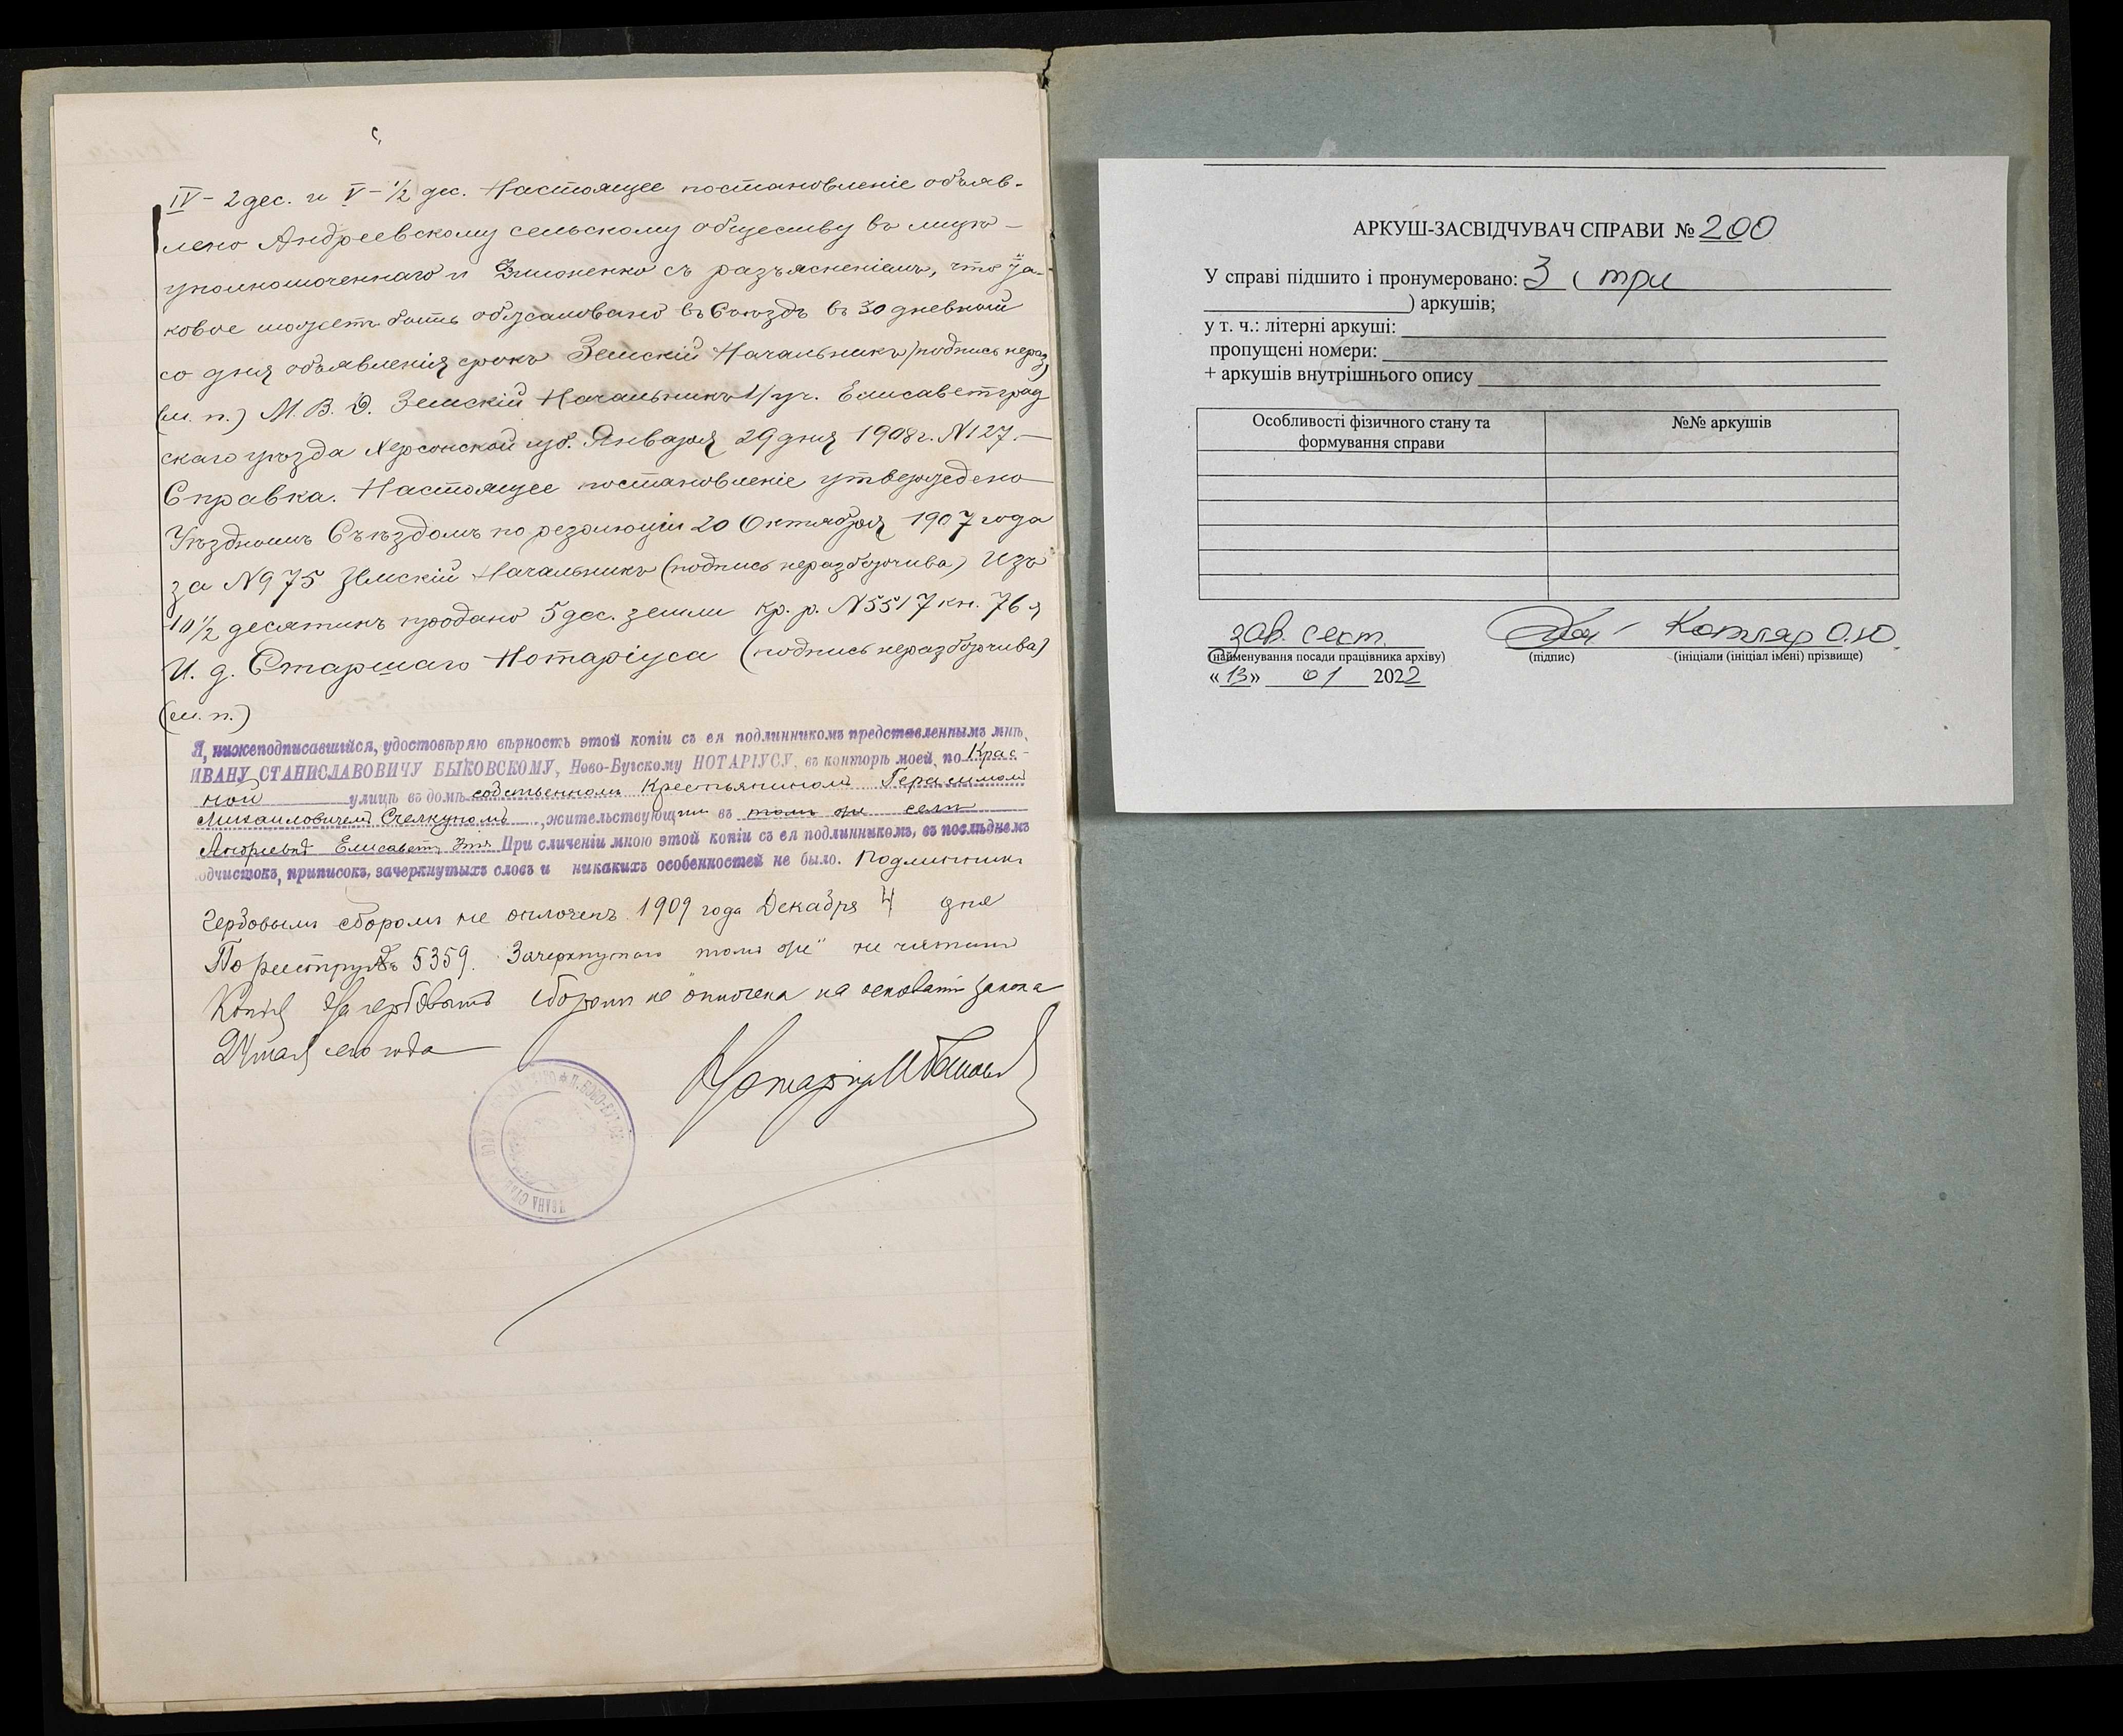 IV – 2 дес. и V – 1/2 дес. Настоящее постановленіе объяв-
лено Андреевскому сельскому обществу въ лицѣ
уполномоченнаго и съ разъясненіемъ, что та-
ковое можетъ быть обжаловано въ Съѣздъ въ 30 дневный
со дня объявленія срокъ Земскій Начальникъ (подпись нераз)
(м. п.) М. В. Д. Земскій Начальникъ уч. Елисаветград
скаго уѣзда Херсонской губ. Января 29 дня 1908 г. N 127. –
Справка. Настоящее постановленіе утверждено
Уѣзднымъ Съѣздомъ по резолюціи 20 Октября 1907 года
за N 975 Земскій Начальникъ (подпись неразборчива) Изъ
10 1/2 десятинъ продано 5 дес. земли кр. р. N 5517 кн. 76 я
И. д. Старшаго Нотаріуса (подпись неразборчива)
(м. п.)
Я, нижеподписавшійся, удостовѣряю вѣрность этой копіи съ ея подлинникомъ представленнымъ мнѣ,
ИВАНУ СТАНИСЛАВОВИЧУ БЫКОВСКОМУ, Ново-Бугскому НОТАРІУСУ, въ конторѣ моей, по Крас-
ной улицѣ въ домѣ собственномъ Крестьяниномъ Герасимомъ
Михаиловичемъ , жительствующимъ въ томъ же селѣ
Андреевкѣ Елисавет. При сличеніи мною этой копіи съ ея подлинникомъ, въ послѣднемъ
одчистокъ, приписокъ, зачеркнутыхъ словъ и никакихъ особенностей не было. Подлинникъ
гербовымъ сборомъ не оплоченъ 1909 года Декабря 4 дня
По реестру № 5359. Зачеркнутаго „томъ же" не читать
Копія гербовымъ сборомъ не оплочена на основаніи закона
24 мая сего года
Нотаріусъ И Быковск
АРКУШ-ЗАСВІДЧУВАЧ СПРАВИ № 200
У справі підшито і пронумеровано: 3 ( три
) аркушів;
у т. ч.: літерні аркуші:
пропущені номери:
+ аркушів внутрішнього опису
Особливості фізичного стану та формування справи №№ аркушів
зав. сект. Котляр О.Ю.
(найменування посади працівника архіву) (підпис) (ініціали (ініціал імені) прізвище)
«13» 01 2022